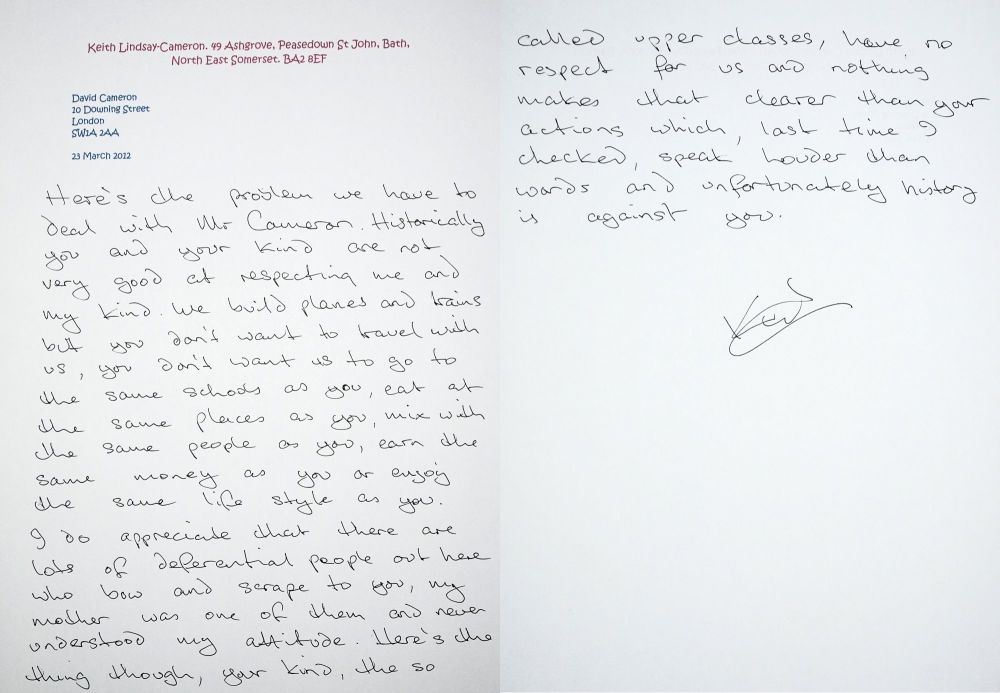 Keith Lindsay-Cameron. 49 Ashgrove, Peasedown St John, Bath,
North East Somerset. BA2 8EF
David Cameron
10 Downing Street
London
SW1A 2AA
23 March 2012
Here's the problem we have to
deal with Mr Cameron. Historically
you and your kind are not
very good at respecting me and
my kind. We build planes and trains
but you don't want to travel with
us, you don't want us to go to
the same schools as you, eat at
the same places as you, mix with
the same people as you, earn the
same money as you or enjoy
the same life style as you.
I do appreciate that there are
lots of deferential people out here
who bow and scrape to you, my
mother was one of them and never
understood my attitude. Here's the
thing though, your kind, the so
called upper classes, have no
respect for us and nothing
makes that clearer than your
actions which, last time I
checked, speak louder than
words and unfortunately history
is against you.
Keith